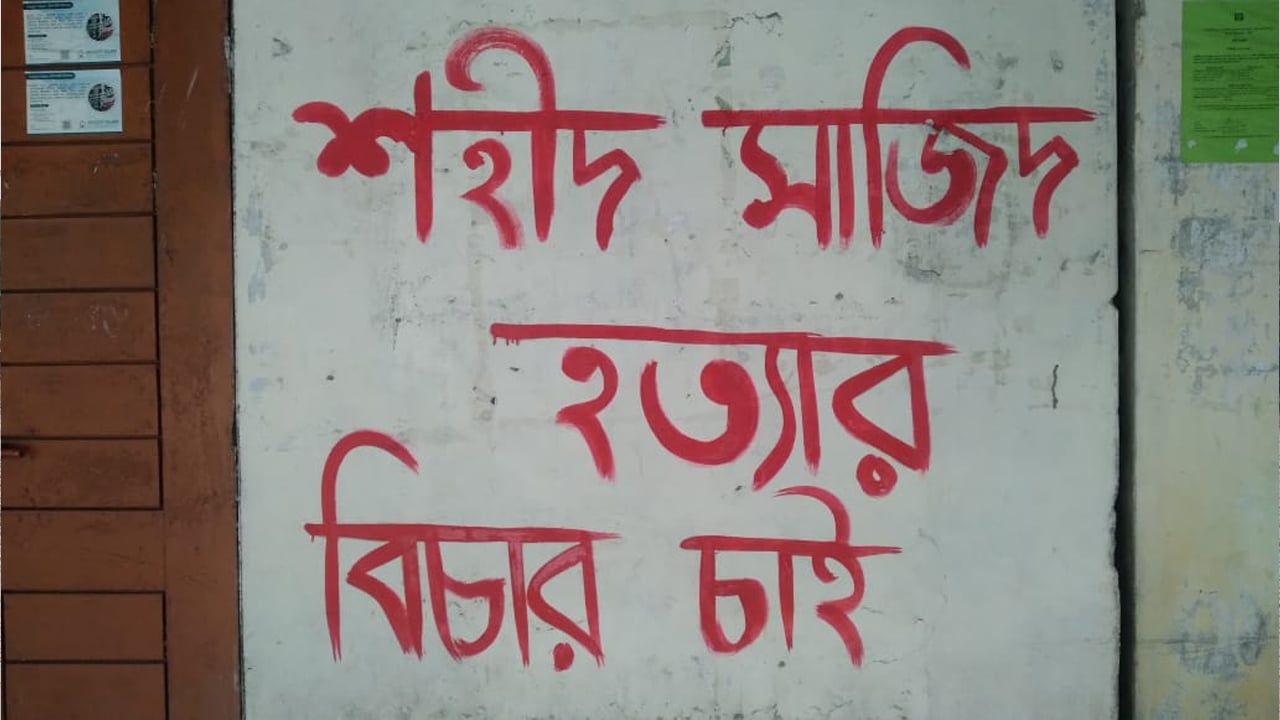 শহীদ সাজিদ
হত্যার
বিচার চাই